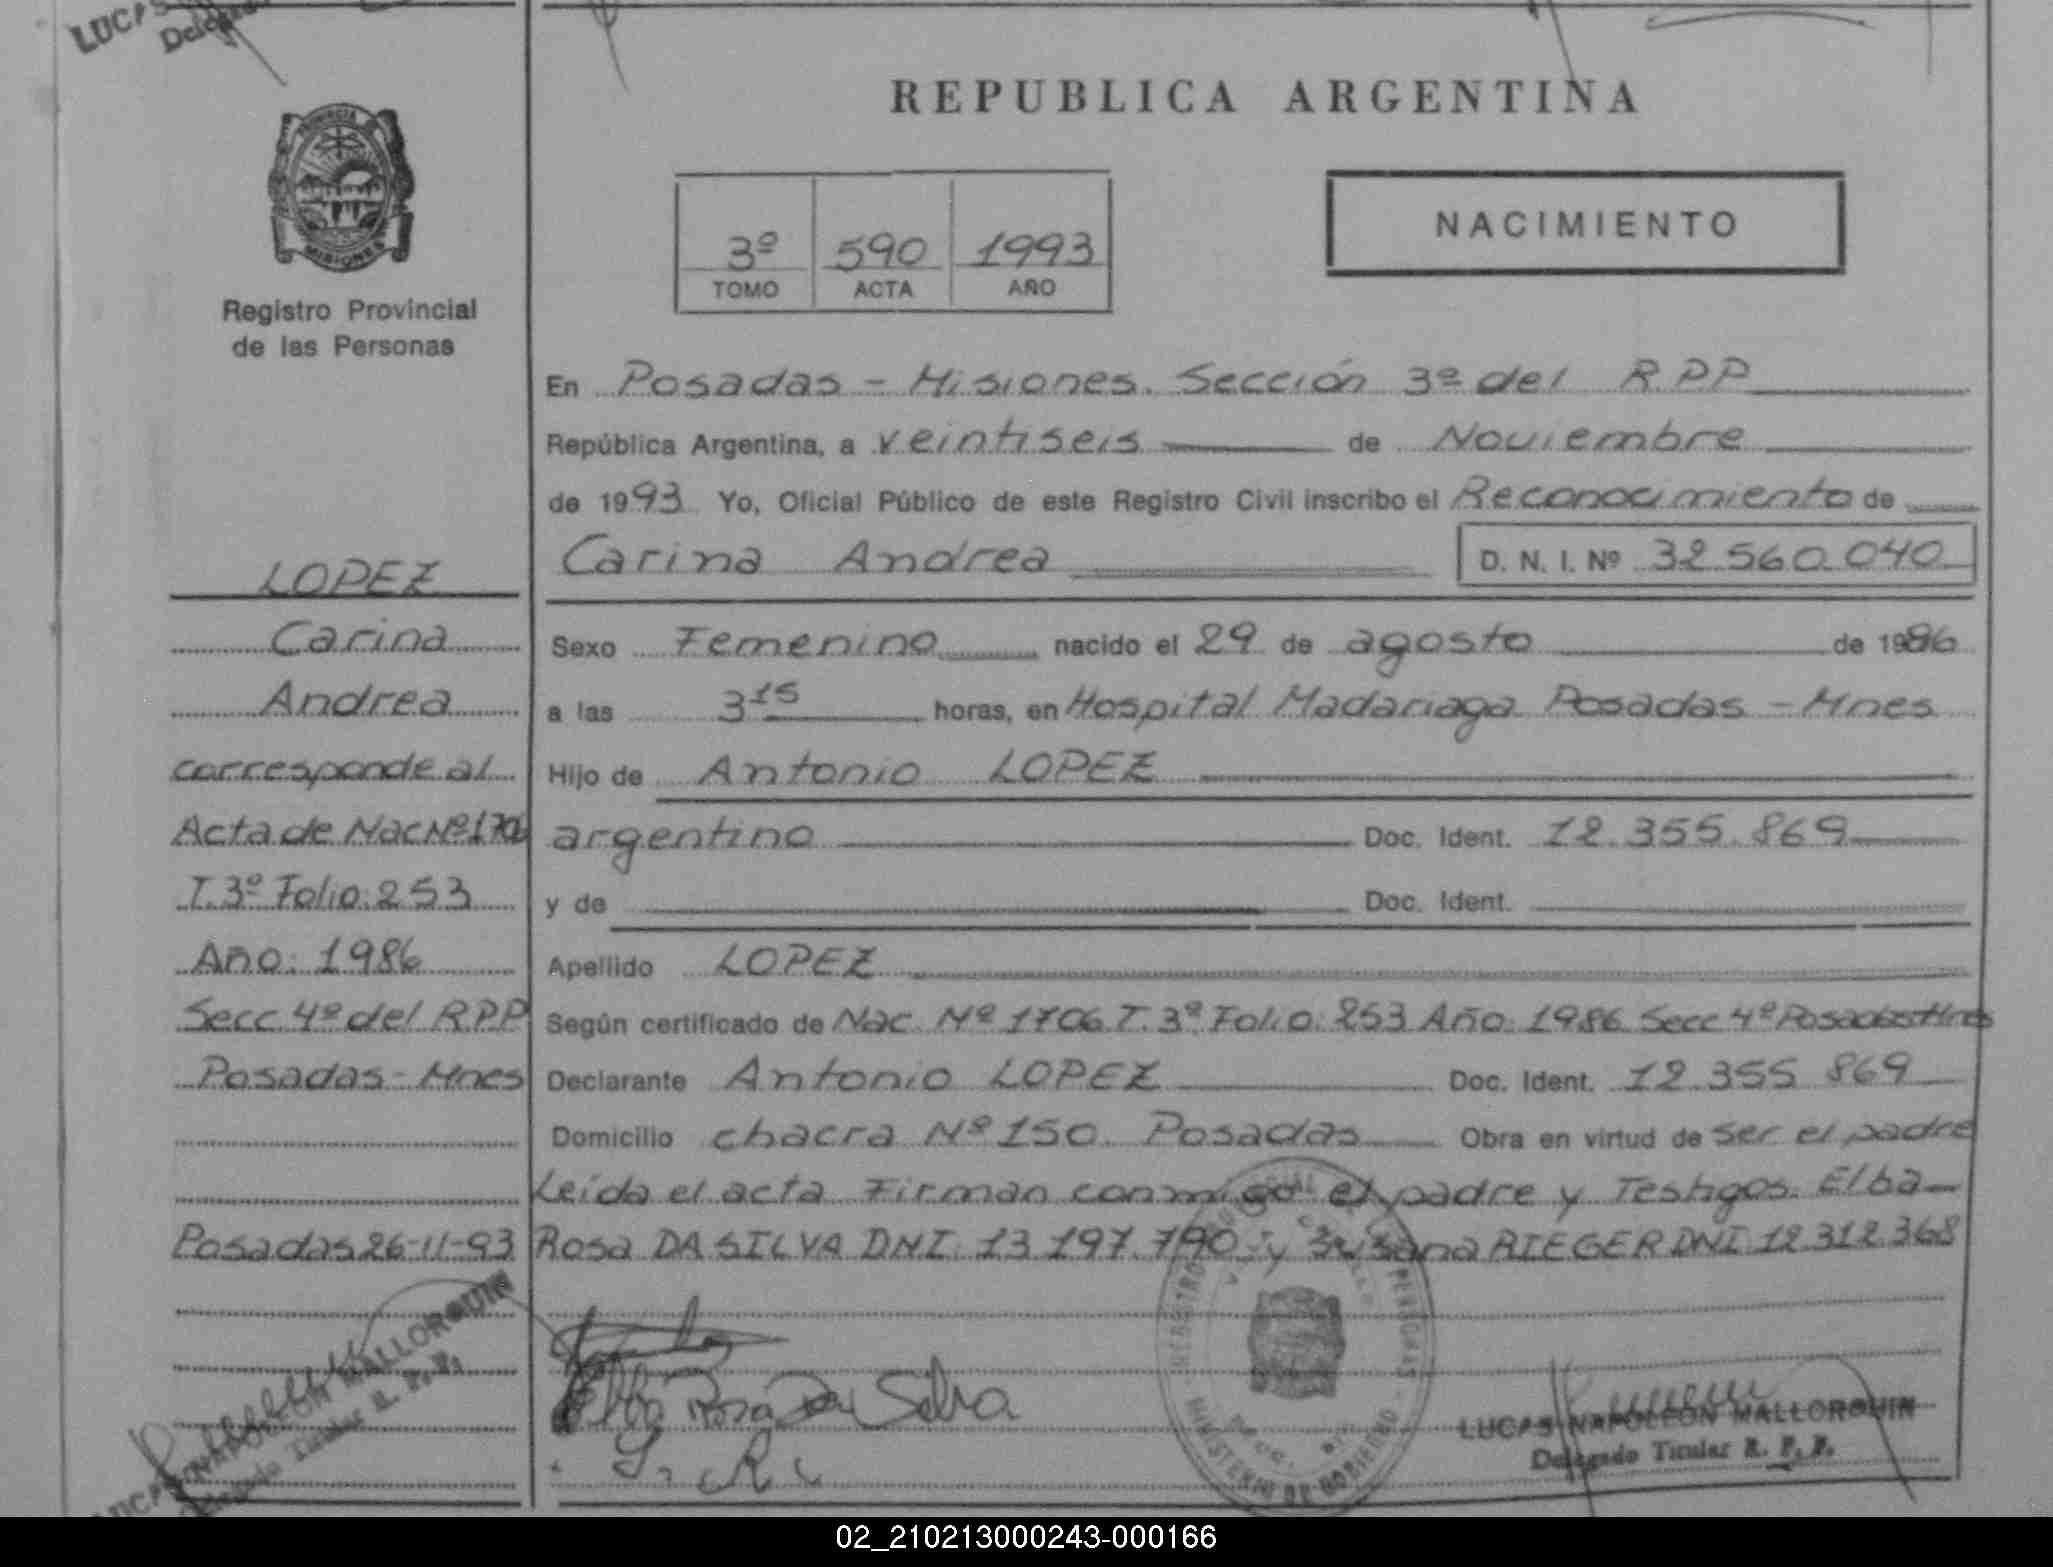 LUCAS
REPUBLICA ARGENTINA
PROVINCIA DE
MISIONES
Registro Provincial
de las Personas
3º 590 1993
TOMO ACTA AÑO
NACIMIENTO
En Posadas - Misiones. Sección 3ª del R.P.P
República Argentina, a veintiseis de Noviembre
de 1993. Yo, Oficial Público de este Registro Civil inscribo el Reconocimiento de
Carina Andrea D. N. I. Nº 32.560.040
Sexo Femenino nacido el 29 de agosto de 1986
a las 3 15 horas, en Hospital Madariaga Posadas - Mnes
Hijo de Antonio LOPEZ
argentino Doc. Ident. 12.355.869
y de Doc. Ident.
Apellido LOPEZ
Según certificado de Nac. Nº 1706 T. 3º Folio: 253 Año: 1986 Secc 4ª Posadas Mnes
Declarante Antonio LOPEZ Doc. Ident. 12.355.869
Domicilio chacra Nº 150. Posadas Obra en virtud de ser el padre
Leída el acta Firman conmigo el padre y Testigos. Elba
Rosa DA SILVA DNI. 13.197.790 y Susana RIEGER DNI 12.312.368
LOPEZ
Carina
Andrea
corresponde al
Acta de Nac Nº 1706
T. 3º Folio: 253
Año: 1986
Secc 4ª del RPP
Posadas - Mnes
Posadas 26-11-93
LUCAS NAPOLEON MALLORQUIN
Delegado Titular R. P. P.
Elba Rosa Da Silva
REGISTRO PROVINCIAL DE LAS PERSONAS
MINISTERIO DE GOBIERNO
LUCAS NAPOLEON MALLORQUIN
Delegado Titular R. P. P.
02_210213000243-000166